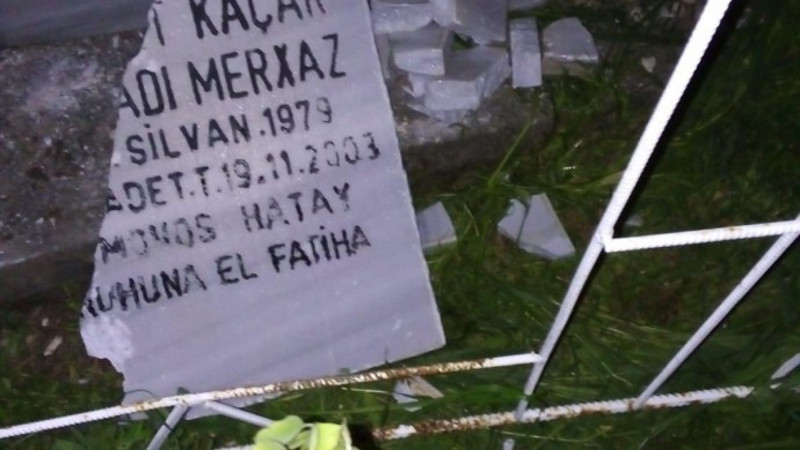 T KAÇAR
ADI MERXAZ
SİLVAN.1979
ADET.T.19.11.2003
MONOS HATAY
RUHUNA EL FATİHA